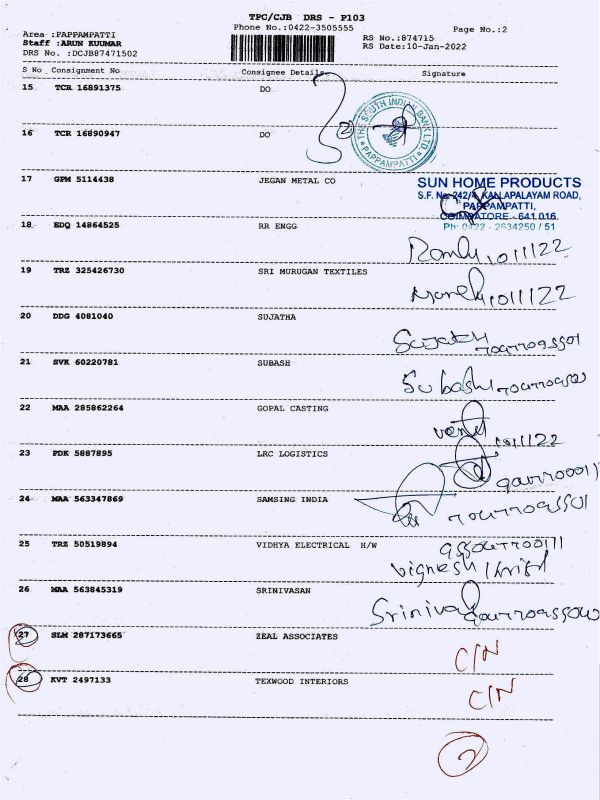 TPC/CJB DRS - P103
Phone No.:0422-3505555
Page No.:2
Area :PAPPAMPATTI
RS No.:874715
Staff :ARUN KUUMAR
RS Date:10-Jan-2022
DRS No. :DCJB87471502
S No Consignment No Consignee Details Signature
15 TCR 16891375 DO
THE SOUTH INDIAN BANK LTD
PAPPAMPATTI
16 TCR 16890947 DO
17 GPM 5114438 JEGAN METAL CO
SUN HOME PRODUCTS
S.F. No. 242/ KALLAPALAYAM ROAD,
PAPPAMPATTI,
COIMBATORE - 641 016.
Ph: 0422 - 2634250 / 51
18 EDQ 14864525 RR ENGG
1011122
19 TRZ 325426730 SRI MURUGAN TEXTILES
1011122
20 DDG 4081040 SUJATHA
Sujath
21 SVK 60220781 SUBASH
Subash
22 MAA 285862264 GOPAL CASTING
1011122
23 PDK 5887895 LRC LOGISTICS
24 MAA 563347869 SAMSING INDIA
25 TRZ 50519894 VIDHYA ELECTRICAL H/W
Vignesh
26 MAA 563845319 SRINIVASAN
Srinivas
27 SLM 287173665 ZEAL ASSOCIATES
C/N
28 KVT 2497133 TEXWOOD INTERIORS
C/N
2